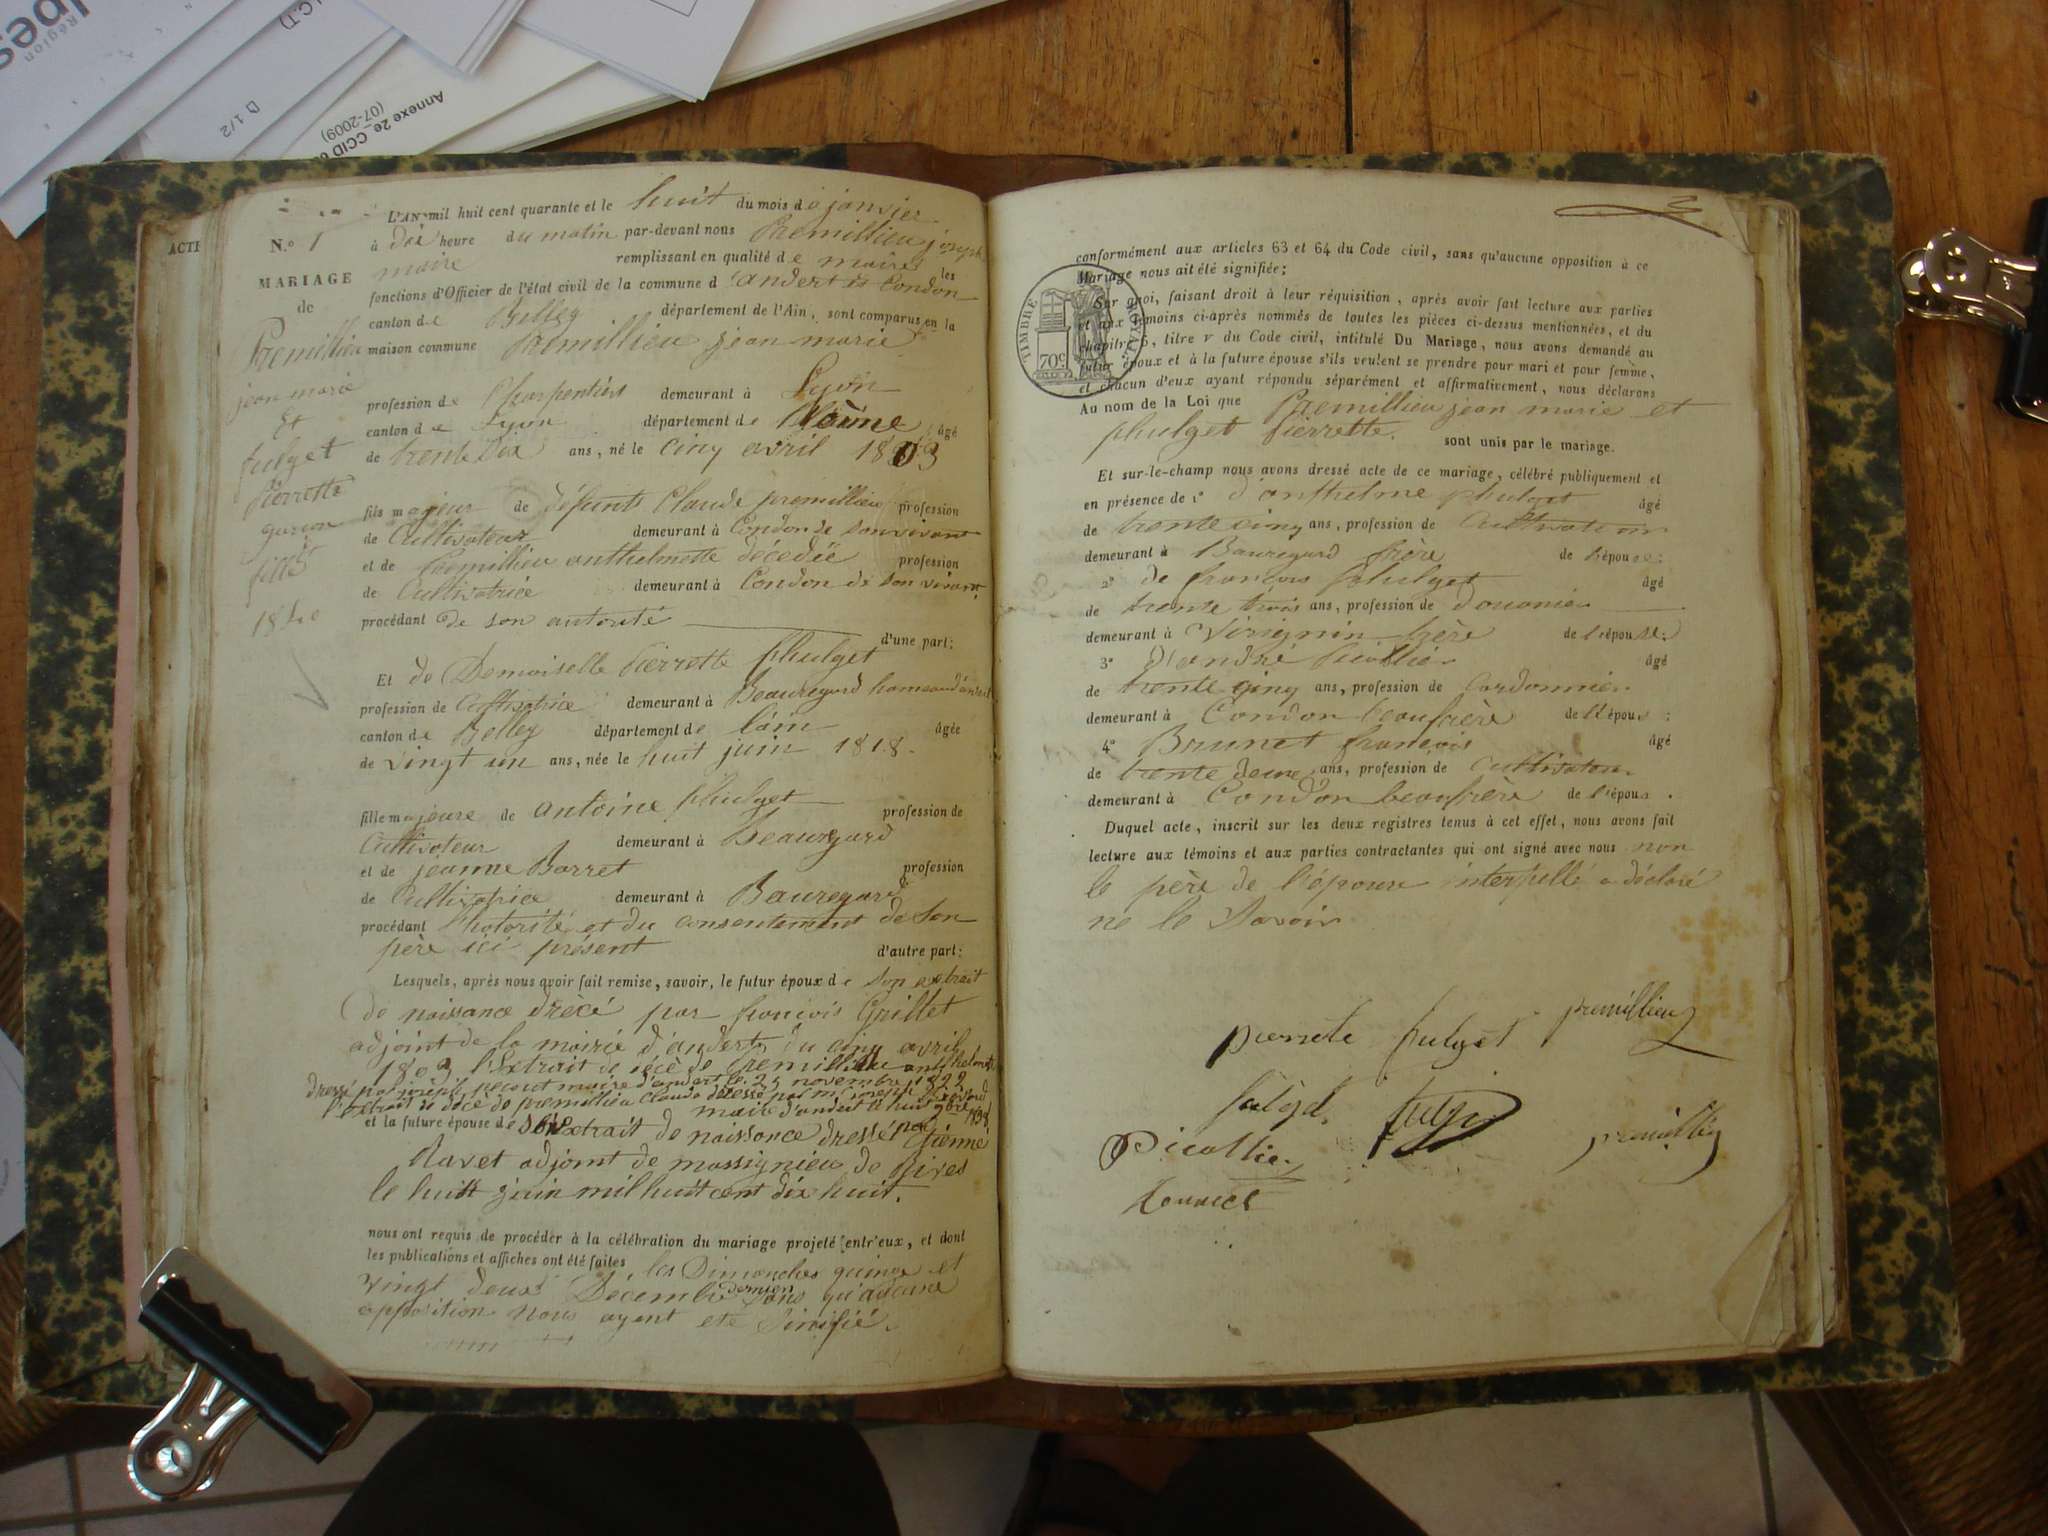 Région
lpes
C.T)
D 1/2
Annexe 2e_CCID
(07-2009)
ACTE
N.° 1
MARIAGE
de
Premillieu
jean marie
Et
fulget
Pierrette
garcon
fille
1840
L'AN mil huit cent quarante et le huit du mois de janvier
à dix heure du matin par-devant nous Premillieu joseph
maire remplissant en qualité de maire les
fonctions d'Officier de l'état civil de la commune d'andert et Condon
canton de Belley département de l'Ain, sont comparus en la
maison commune Premillieu jean marie
profession de Charpentier demeurant à Lyon
canton de Lyon département de Rhône âgé
de trente six ans, né le cinq avril 1803
fils majeur de défunt Claude premillieu profession
de Cultivateur demeurant à Condon de son vivant
et de Premillieu anthelmette décédée profession
de Cultivatrice demeurant à Condon de son vivant
procédant de son autorité d'une part:
Et de Demoiselle Pierrette phulget
profession de Cultivatrice demeurant à Beauregard hameau d'andert
canton de Belley département de l'ain âgée
de vingt un ans, née le huit juin 1818.
fille majeure de antoine phulget profession de
Cultivateur demeurant à Beauregard
et de jeanne Barret profession
de Cultivatrice demeurant à Beauregard
procédant l'hotorité et du consentement de son
père ici présent d'autre part:
Lesquels, après nous avoir fait remise, savoir, le futur époux de son extrait
de naissance drècé par francois Grillet
adjoint de la mairie d'andert du cinq avril
1803 l'Extrait de décè de Premillieu anthelmette
dressé par joseph pecout maire d'andert le 25 novembre 1822
l'extrait de décè de premillieu Claude dressé par m. joseph
maire d'andert le huit 9bre
et la future épouse de son extrait de naissance dressé par Etienne
Ravet adjoint de massignieu de Rives
le huit juin mil huit cent dix huit.
nous ont requis de procéder à la célébration du mariage projeté entr'eux, et dont
les publications et affiches ont été faites les Dimanches quinze et
vingt deux Décembre dernier sans qu'aucune
opposition nous ayent eté Sinifié.
conformément aux articles 63 et 64 du Code civil, sans qu'aucune opposition à ce
Mariage nous ait été signifiée;
TIMBRE ROYAL
70c
Sur quoi, faisant droit à leur réquisition, après avoir fait lecture aux parties
et aux témoins ci-après nommés de toutes les pièces ci-dessus mentionnées, et du
chapitre 6, titre v du Code civil, intitulé Du Mariage, nous avons demandé au
futur époux et à la future épouse s'ils veulent se prendre pour mari et pour femme,
et chacun d'eux ayant répondu séparément et affirmativement, nous déclarons
Au nom de la Loi que Premillieu jean marie et
phulget Pierrette. sont unis par le mariage.
Et sur-le-champ nous avons dressé acte de ce mariage, célébré publiquement et
en présence de 1° d'anthelme phulget âgé
de trente cinq ans, profession de Cultivateur
demeurant à Beauregard frère de l'épouse:
2° de francois phulget âgé
de trente trois ans, profession de douanier
demeurant à Virignin frère de l'épouse:
3° d'andré Picollier âgé
de trente cinq ans, profession de Cordonnier
demeurant à Condon beaufrère de l'épous :
4° Brunet francois âgé
de trente deux ans, profession de Cultivateur
demeurant à Condon beaufrère de l'époux .
Duquel acte, inscrit sur les deux registres tenus à cet effet, nous avons fait
lecture aux témoins et aux parties contractantes qui ont signé avec nous non
le père de l'épouse interpellé a déclaré
ne le Savoir
premillieu
pierrete fulget
premillieu
Picollier